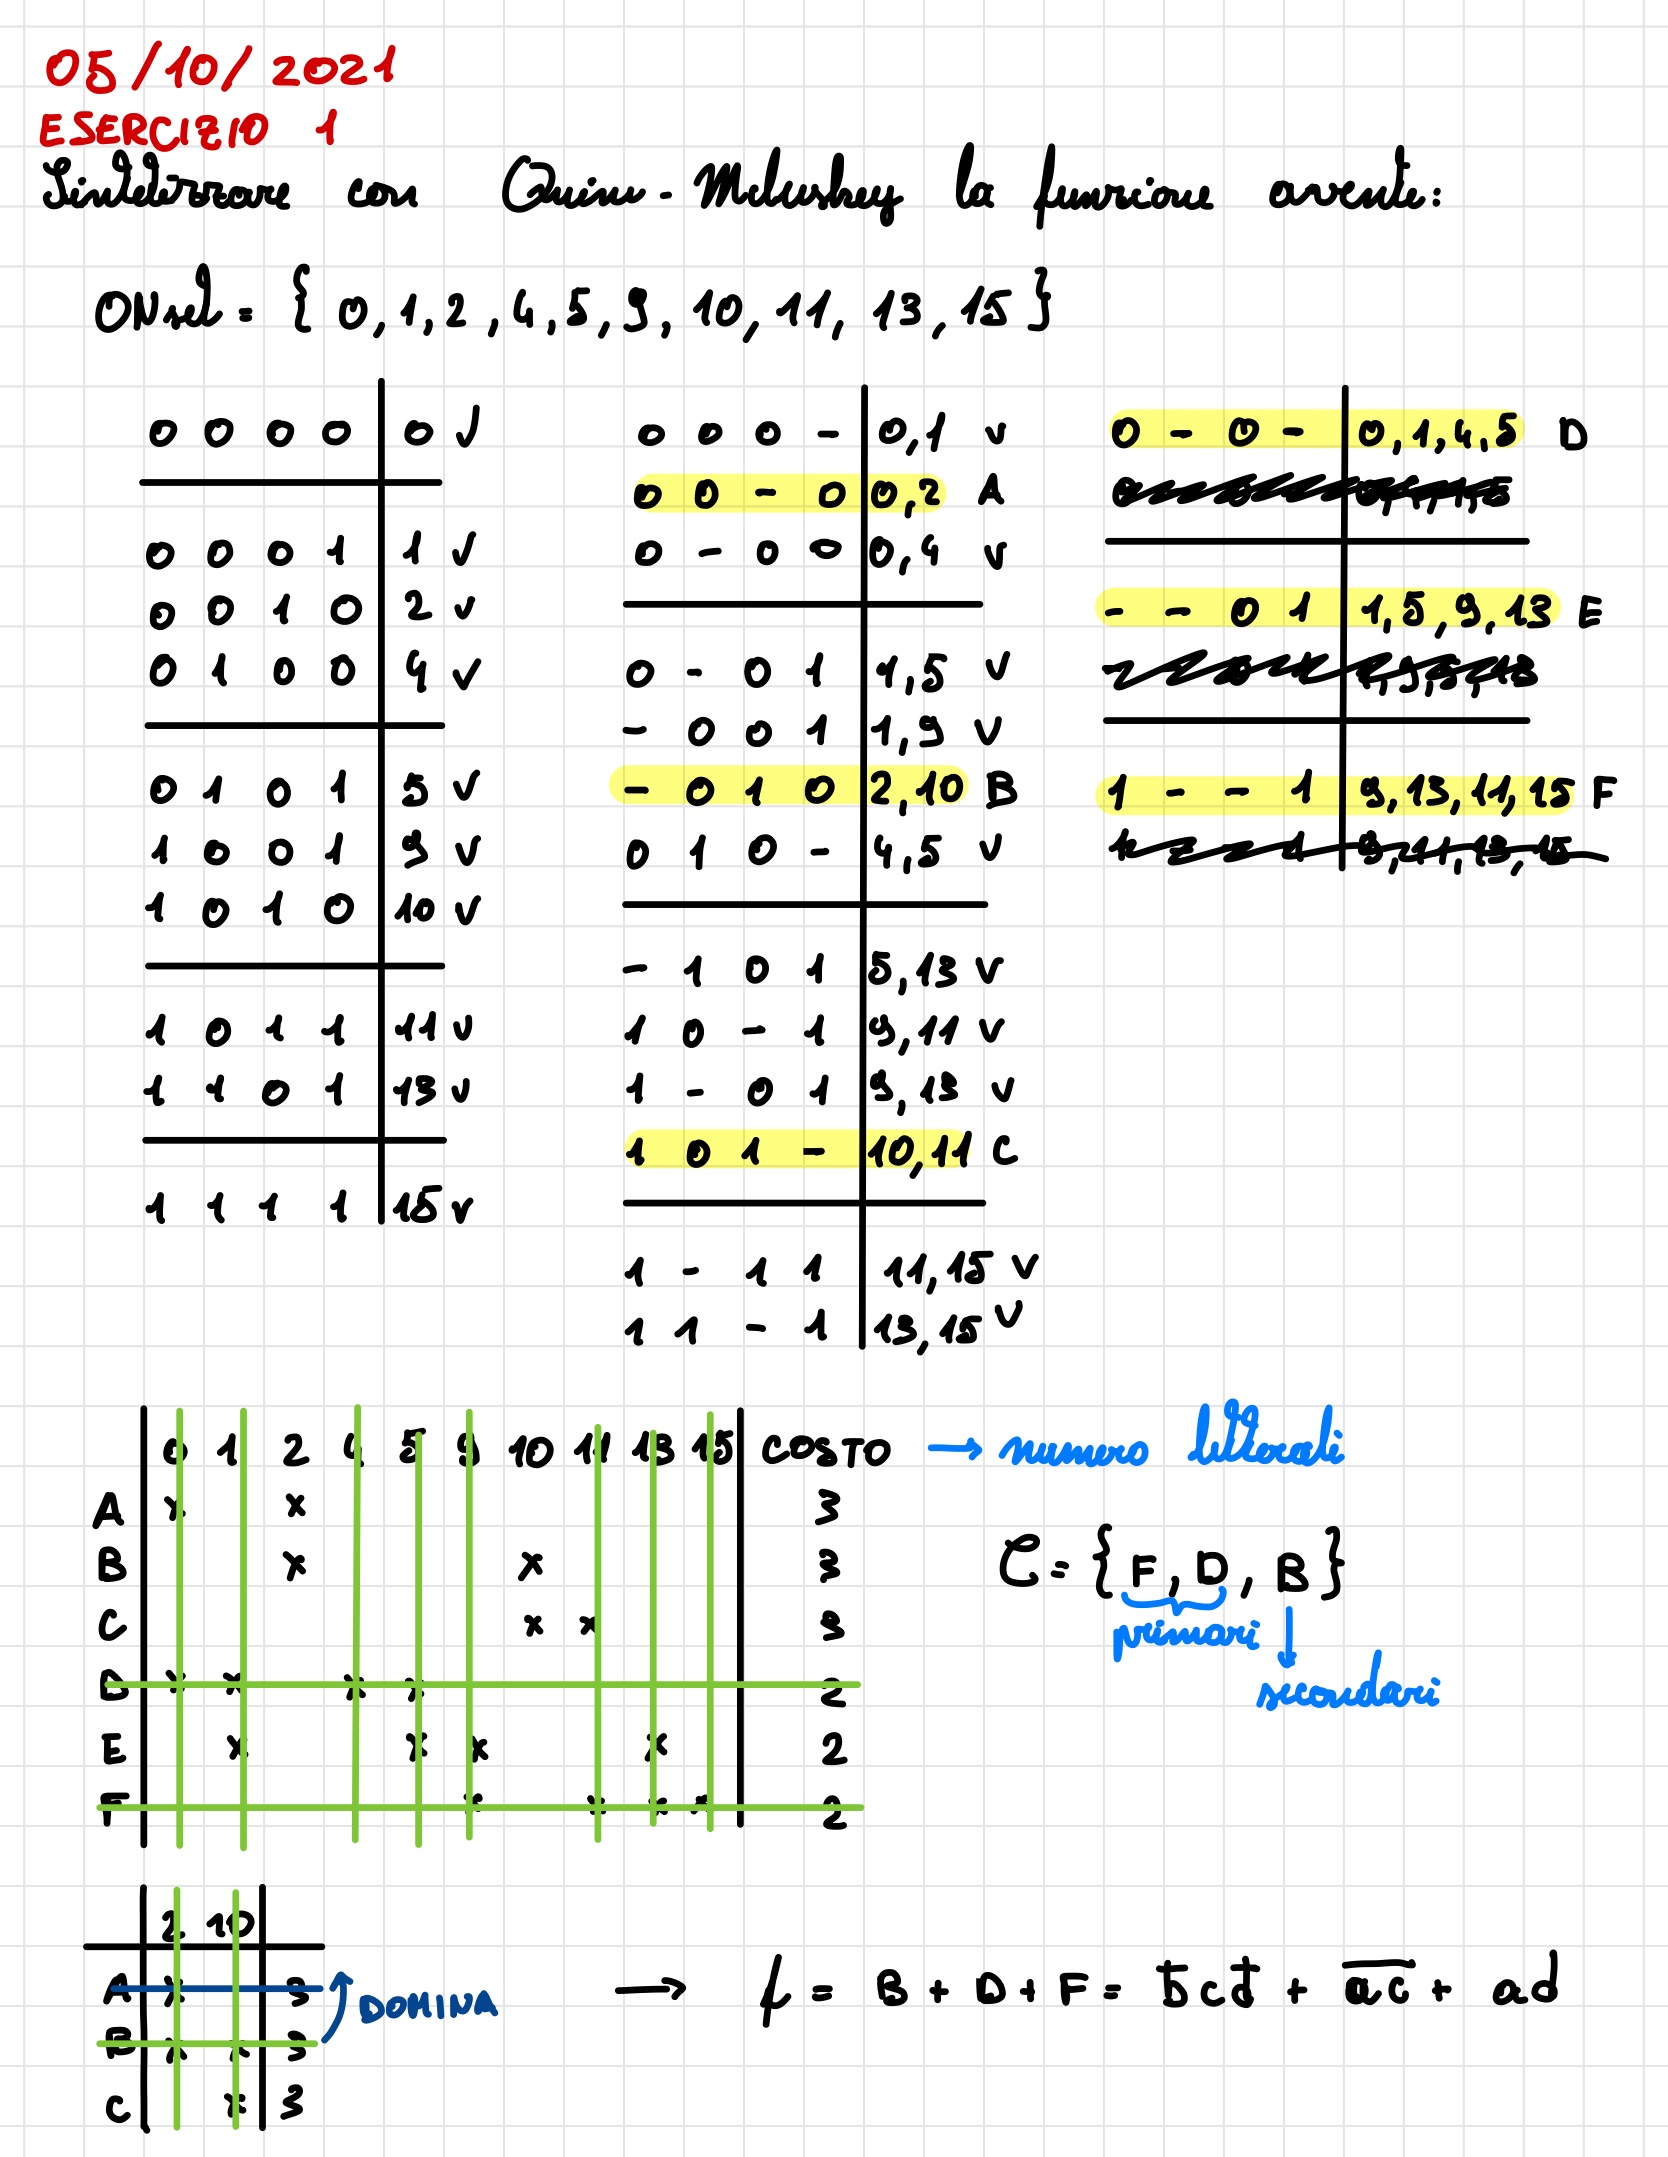 05/10/2021
ESERCIZIO 1
Sintetizzare con Quine-McCluskey la funzione avente:
ONset = { 0, 1, 2, 4, 5, 9, 10, 11, 13, 15 }
0 0 0 0 | 0 ✓
0 0 0 1 | 1 ✓
0 0 1 0 | 2 ✓
0 1 0 0 | 4 ✓
0 1 0 1 | 5 ✓
1 0 0 1 | 9 ✓
1 0 1 0 | 10 ✓
1 0 1 1 | 11 ✓
1 1 0 1 | 13 ✓
1 1 1 1 | 15 ✓
0 0 0 - | 0,1 ✓
0 0 - 0 | 0,2 A
0 - 0 0 | 0,4 ✓
0 - 0 1 | 1,5 ✓
- 0 0 1 | 1,9 ✓
- 0 1 0 | 2,10 B
0 1 0 - | 4,5 ✓
- 1 0 1 | 5,13 ✓
1 0 - 1 | 9,11 ✓
1 - 0 1 | 9,13 ✓
1 0 1 - | 10,11 C
1 - 1 1 | 11,15 ✓
1 1 - 1 | 13,15 ✓
0 - 0 - | 0,1,4,5 D
- - 0 1 | 1,5,9,13 E
1 - - 1 | 9,13,11,15 F
1 - - 1 | 9,11,13,15
0 1 2 4 5 9 10 11 13 15 COSTO → numero letterali
A x x 3
B x x 3
C x x 3
D x x x x 2
E x x x x 2
F x x x x 2
C = { F, D, B }
primari
secondari
2 10
A x 3
B x x 3
C x 3
DOMINA
→ f = B + D + F = b̅cd̅ + a̅c̅ + ad